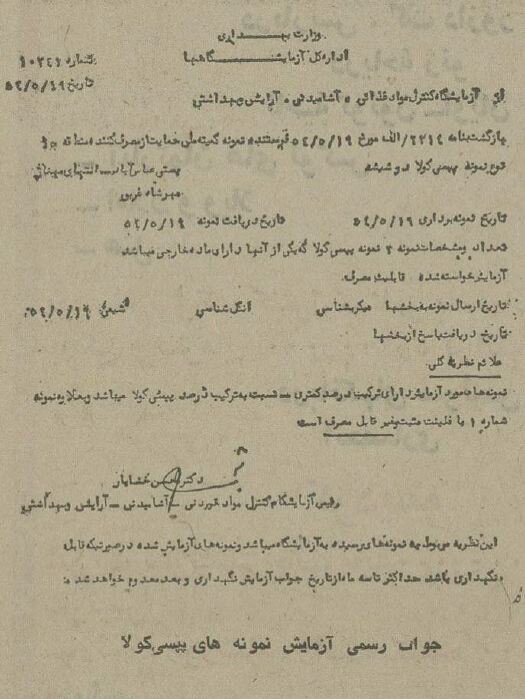 وزارت بهـــداری
اداره کل آزمایشـــگاهها
شماره ۱۰۲۴۱
تاریخ ۵۲/۵/۱۹
از آزمایشگاه کنترل مواد غذائی ، آشامیدنی ، آرایش و بهداشتی
بازگشت بنامه ۲۲۱۴/الف مورخ ۵۲/۵/۱۹ فرستنده نمونه کمیته ملی حمایت از مصرف کننده منطقه ۱۰
نوع نمونه پپسی کولا دو شیشه
پستی عباس آباد انتهای میهنانی
مهرشاد غریور
تاریخ نمونه برداری ۵۲/۵/۱۹ تاریخ دریافت نمونه ۵۲/۵/۱۹
تعداد و مشخصات نمونه ۲ نمونه پپسی کولا که یکی از آنها دارای ماده خارجی میباشد
آزمایش خواسته شده قابلیت مصرف
تاریخ ارسال نمونه به بخشها میکربشناسی انگل شناسی شیمی ۵۲/۵/۱۹
تاریخ دریافت پاسخ از بخشها
علائم نظریه کلی
نمونه ها مورد آزمایش دارای ترکیب درصد کمتری ــ نسبت به ترکیب درصد پپسی کولا میباشد و بعلاوه نمونه
شماره ۱ با مثبت و غیر قابل مصرف است
دکتر حسن خشایار
رئیس آزمایشگاه کنترل مواد خوردنی ــ آشامیدنی ــ آرایش و بهداشتی
این نظریه مربوط به نمونه های رسیده به آزمایشگاه میباشد و نمونه های آزمایش شده در صورتیکه قابل
نگهداری باشد حداکثر تا سه ماه از تاریخ جواب آزمایش نگهداری و بعد معدوم خواهد شد .
جواب رسمی آزمایش نمونه های پپسی کولا